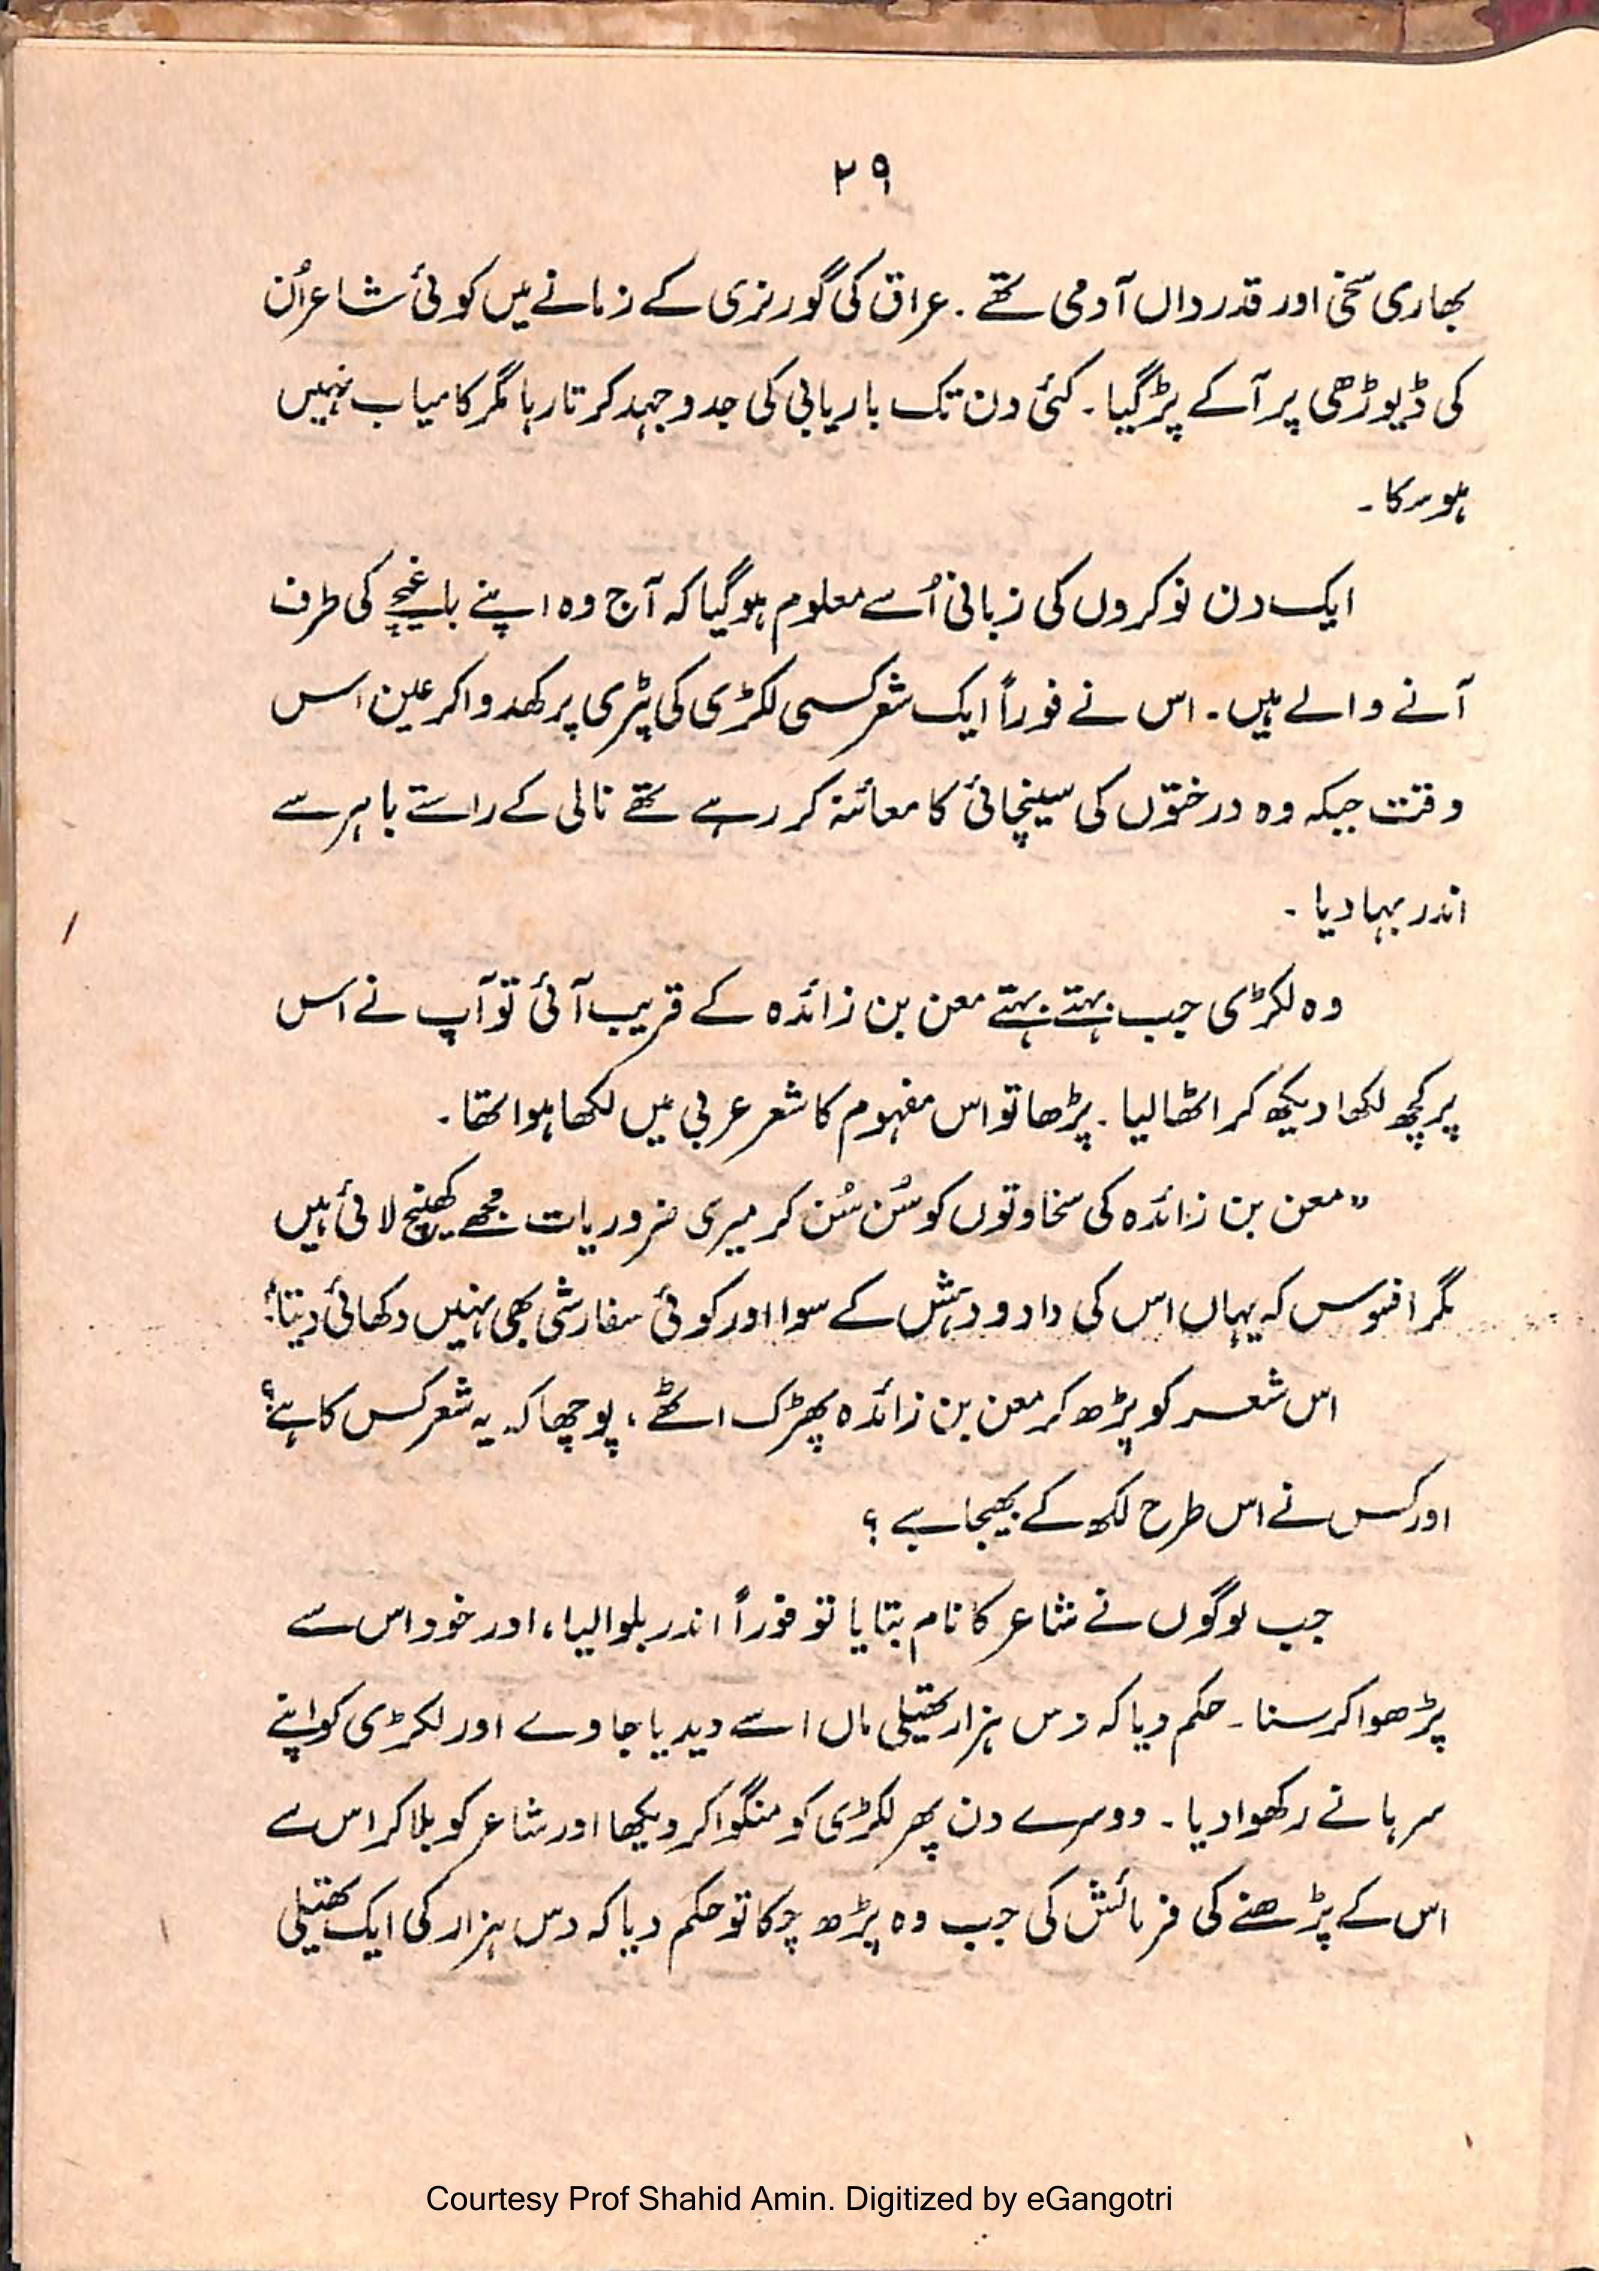 ۲۹
بھاری سخی اور قدرداں آدمی تھے ۔ عراق کی گورنری کے زمانے میں کوئی شاعر اُن
کی ڈیوڑھی پر آ کے پڑ گیا ۔ کئی دن تک باریابی کی جدوجہد کرتا رہا مگر کامیاب نہیں
ہو سکا ۔
ایک دن نوکروں کی زبانی اُسے معلوم ہو گیا کہ آج وہ اپنے باغیچے کی طرف
آنے والے ہیں ۔ اس نے فوراً ایک شعر کسی لکڑی کی پٹری پر کھدوا کر عین اس
وقت جبکہ وہ درختوں کی سینچائی کا معائنہ کر رہے تھے نالی کے راستے باہر سے
اندر بہا دیا ۔
وہ لکڑی جب بہتے بہتے معن بن زائدہ کے قریب آئی تو آپ نے اس
پر کچھ لکھا دیکھ کر اٹھا لیا ۔ پڑھا تو اس مفہوم کا شعر عربی میں لکھا ہوا تھا ۔
”معن بن زائدہ کی سخاوتوں کو سُن سُن کر میری ضروریات مجھے کھینچ لائی ہیں
مگر افسوس کہ یہاں اس کی داد و دہش کے سوا اور کوئی سفارشی بھی نہیں دکھائی دیتا“
اس شعر کو پڑھ کر معن بن زائدہ پھڑک اٹھے ، پوچھا کہ یہ شعر کس کا ہے؟
اور کس نے اس طرح لکھ کے بھیجا ہے ؟
جب لوگوں نے شاعر کا نام بتایا تو فوراً اندر بلوا لیا ، اور خود اس سے
پڑھوا کر سنا ۔ حکم دیا کہ دس ہزار تھیلی مال اسے دیدیا جاوے اور لکڑی کو اپنے
سرہانے رکھوا دیا ۔ دوسرے دن پھر لکڑی کو منگوا کر دیکھا اور شاعر کو بلا کر اس سے
اس کے پڑھنے کی فرمائش کی جب وہ پڑھ چکا تو حکم دیا کہ دس ہزار کی ایک تھیلی
Courtesy Prof Shahid Amin. Digitized by eGangotri